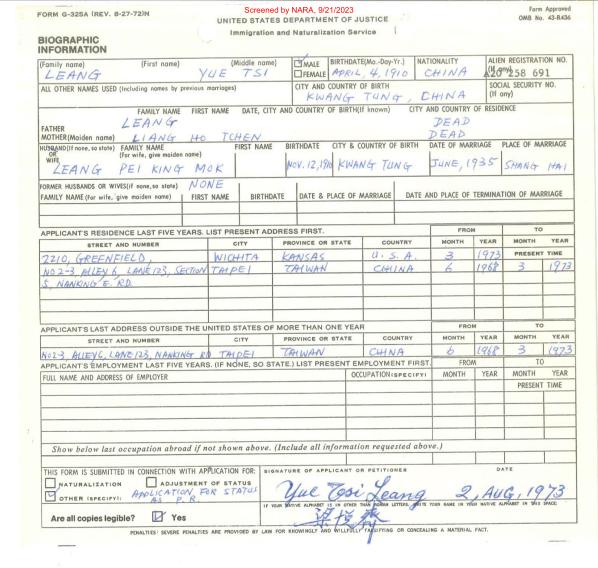 Screened by NARA, 9/21/2023
FORM G-325A (REV. 8-27-72)N
Form Approved
OMB No. 43-R436
UNITED STATES DEPARTMENT OF JUSTICE
Immigration and Naturalization Service
BIOGRAPHIC
INFORMATION
(Family name) (First name) (Middle name) MALE FEMALE BIRTHDATE(Mo.-Day-Yr.) NATIONALITY ALIEN REGISTRATION NO. (If any)
LEANG YUE TSI APRIL, 4, 1910 CHINA A20 258 691
ALL OTHER NAMES USED (Including names by previous marriages) CITY AND COUNTRY OF BIRTH SOCIAL SECURITY NO. (If any)
KWANG TUNG, CHINA
FAMILY NAME FIRST NAME DATE, CITY AND COUNTRY OF BIRTH(If known) CITY AND COUNTRY OF RESIDENCE
FATHER LEANG DEAD
MOTHER(Maiden name) LIANG HO TCHEN DEAD
HUSBAND(If none, so state) OR WIFE FAMILY NAME (For wife, give maiden name) FIRST NAME BIRTHDATE CITY & COUNTRY OF BIRTH DATE OF MARRIAGE PLACE OF MARRIAGE
LEANG PEI KING MOK NOV. 12, 1910 KWANG TUNG JUNE, 1935 SHANG HAI
FORMER HUSBANDS OR WIVES(if none, so state) NONE
FAMILY NAME (For wife, give maiden name) FIRST NAME BIRTHDATE DATE & PLACE OF MARRIAGE DATE AND PLACE OF TERMINATION OF MARRIAGE
APPLICANT'S RESIDENCE LAST FIVE YEARS. LIST PRESENT ADDRESS FIRST. FROM TO
STREET AND NUMBER CITY PROVINCE OR STATE COUNTRY MONTH YEAR MONTH YEAR
2210, GREENFIELD, WICHITA KANSAS U.S.A. 3 1973 PRESENT TIME
NO 2-3, ALLEY 6, LANE 123, SECTION TAIPEI TAIWAN CHINA 6 1968 3 1973
5, NANKING E. RD.
APPLICANT'S LAST ADDRESS OUTSIDE THE UNITED STATES OF MORE THAN ONE YEAR FROM TO
STREET AND NUMBER CITY PROVINCE OR STATE COUNTRY MONTH YEAR MONTH YEAR
NO 2-3, ALLEY 6, LANE 123, NANKING RD TAIPEI TAIWAN CHINA 6 1968 3 1973
APPLICANT'S EMPLOYMENT LAST FIVE YEARS. (IF NONE, SO STATE.) LIST PRESENT EMPLOYMENT FIRST. FROM TO
FULL NAME AND ADDRESS OF EMPLOYER OCCUPATION(SPECIFY) MONTH YEAR MONTH YEAR
PRESENT TIME
Show below last occupation abroad if not shown above. (Include all information requested above.)
THIS FORM IS SUBMITTED IN CONNECTION WITH APPLICATION FOR: SIGNATURE OF APPLICANT OR PETITIONER DATE
NATURALIZATION ADJUSTMENT OF STATUS
OTHER (SPECIFY): APPLICATION FOR STATUS AS P. R.
Yue Tsi Leang 2, AUG, 1973
IF YOUR NATIVE ALPHABET IS IN OTHER THAN ROMAN LETTERS, WRITE YOUR NAME IN YOUR NATIVE ALPHABET IN THIS SPACE:
Are all copies legible? Yes 梁
PENALTIES: SEVERE PENALTIES ARE PROVIDED BY LAW FOR KNOWINGLY AND WILLFULLY FALSIFYING OR CONCEALING A MATERIAL FACT.